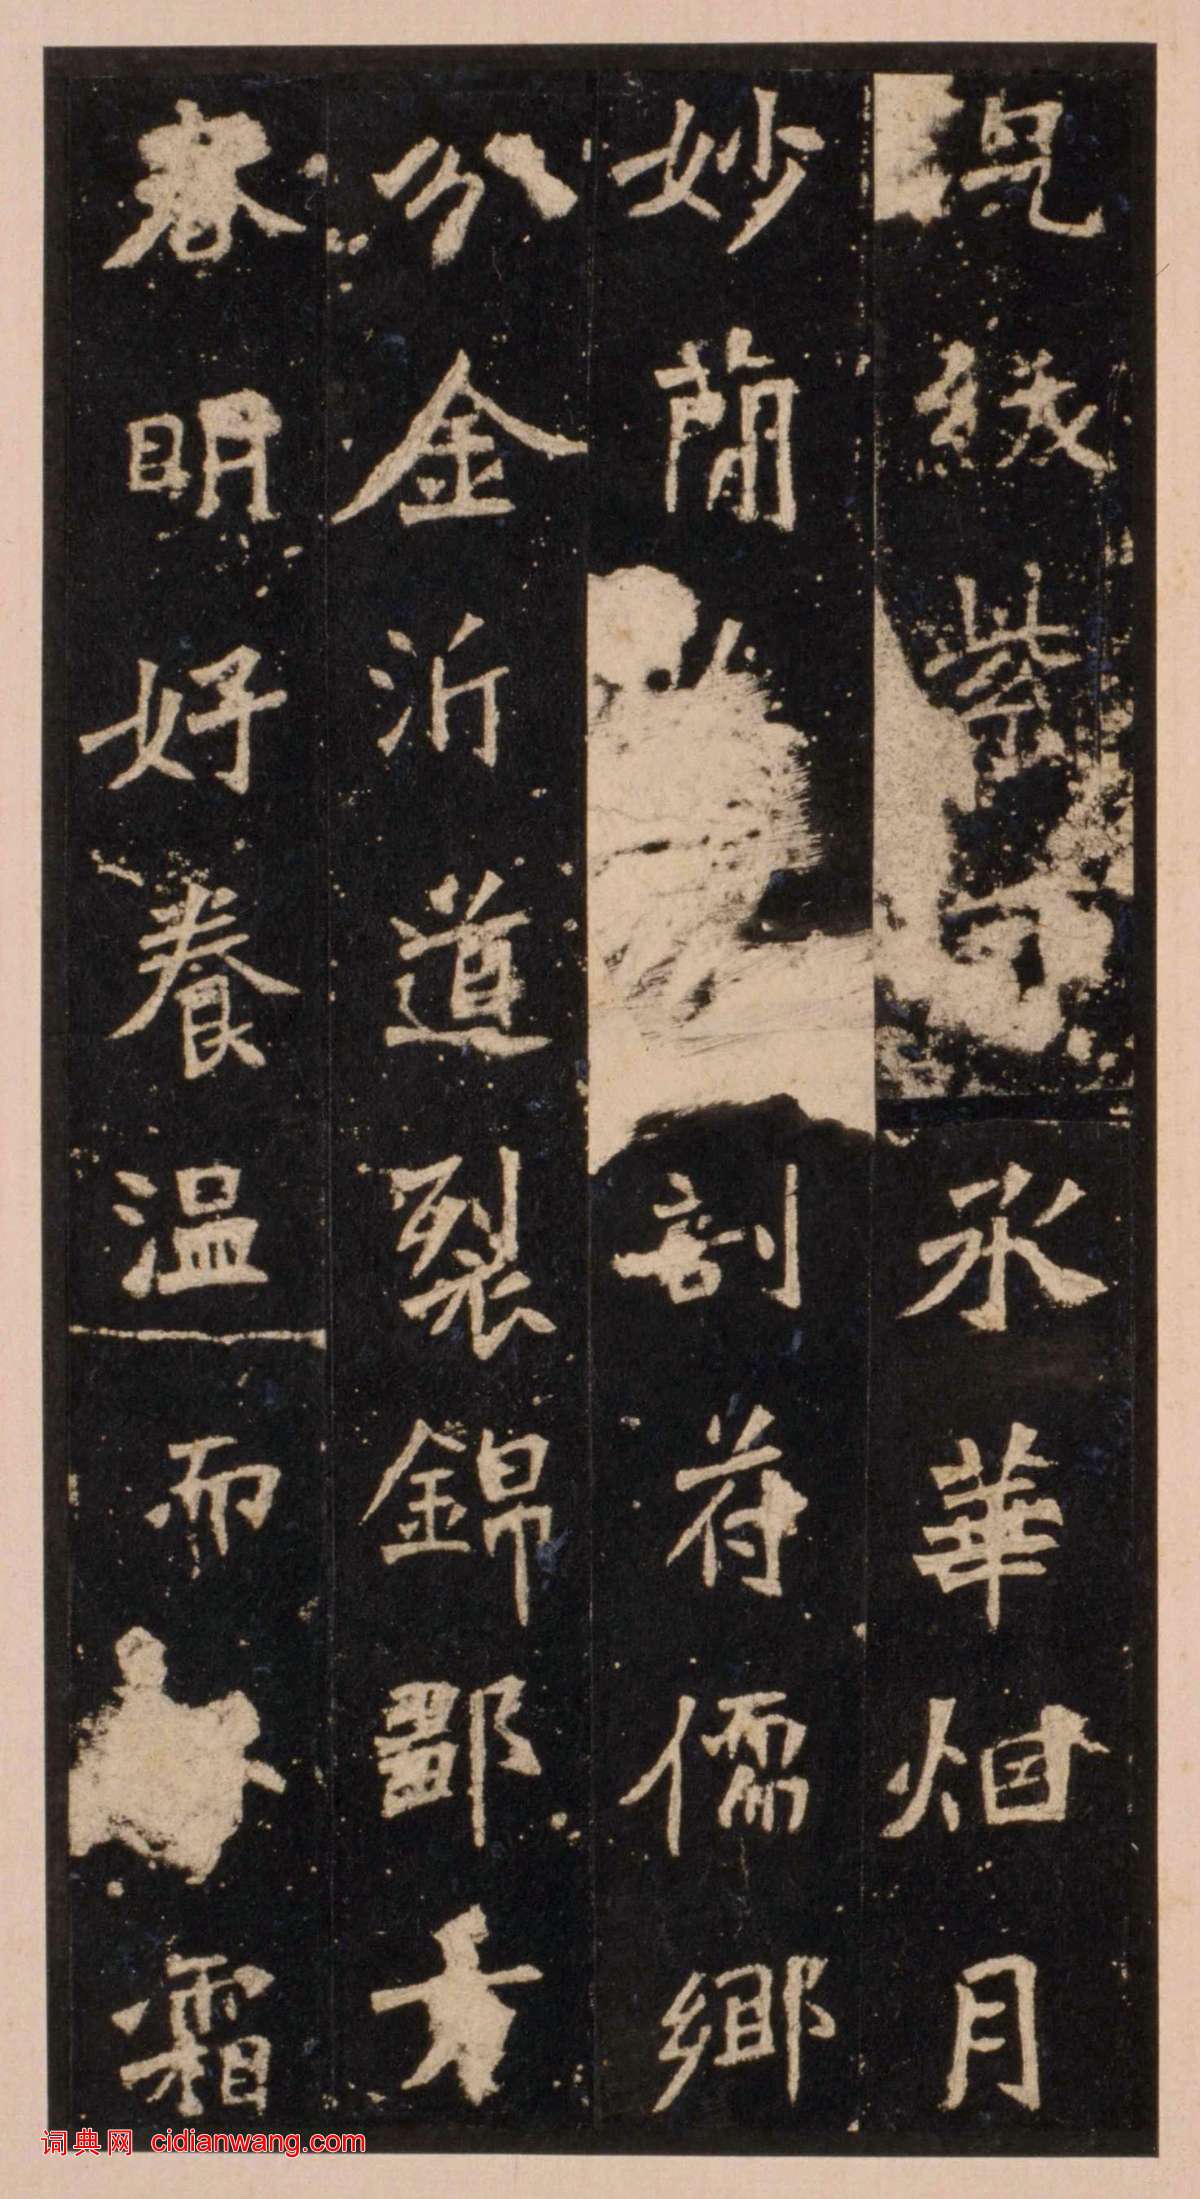 紱紫承華烟月
妙簡剖苻儒鄉
分金沂道裂錦鄒方
春明好養温而霜
词典网 cidianwang.com